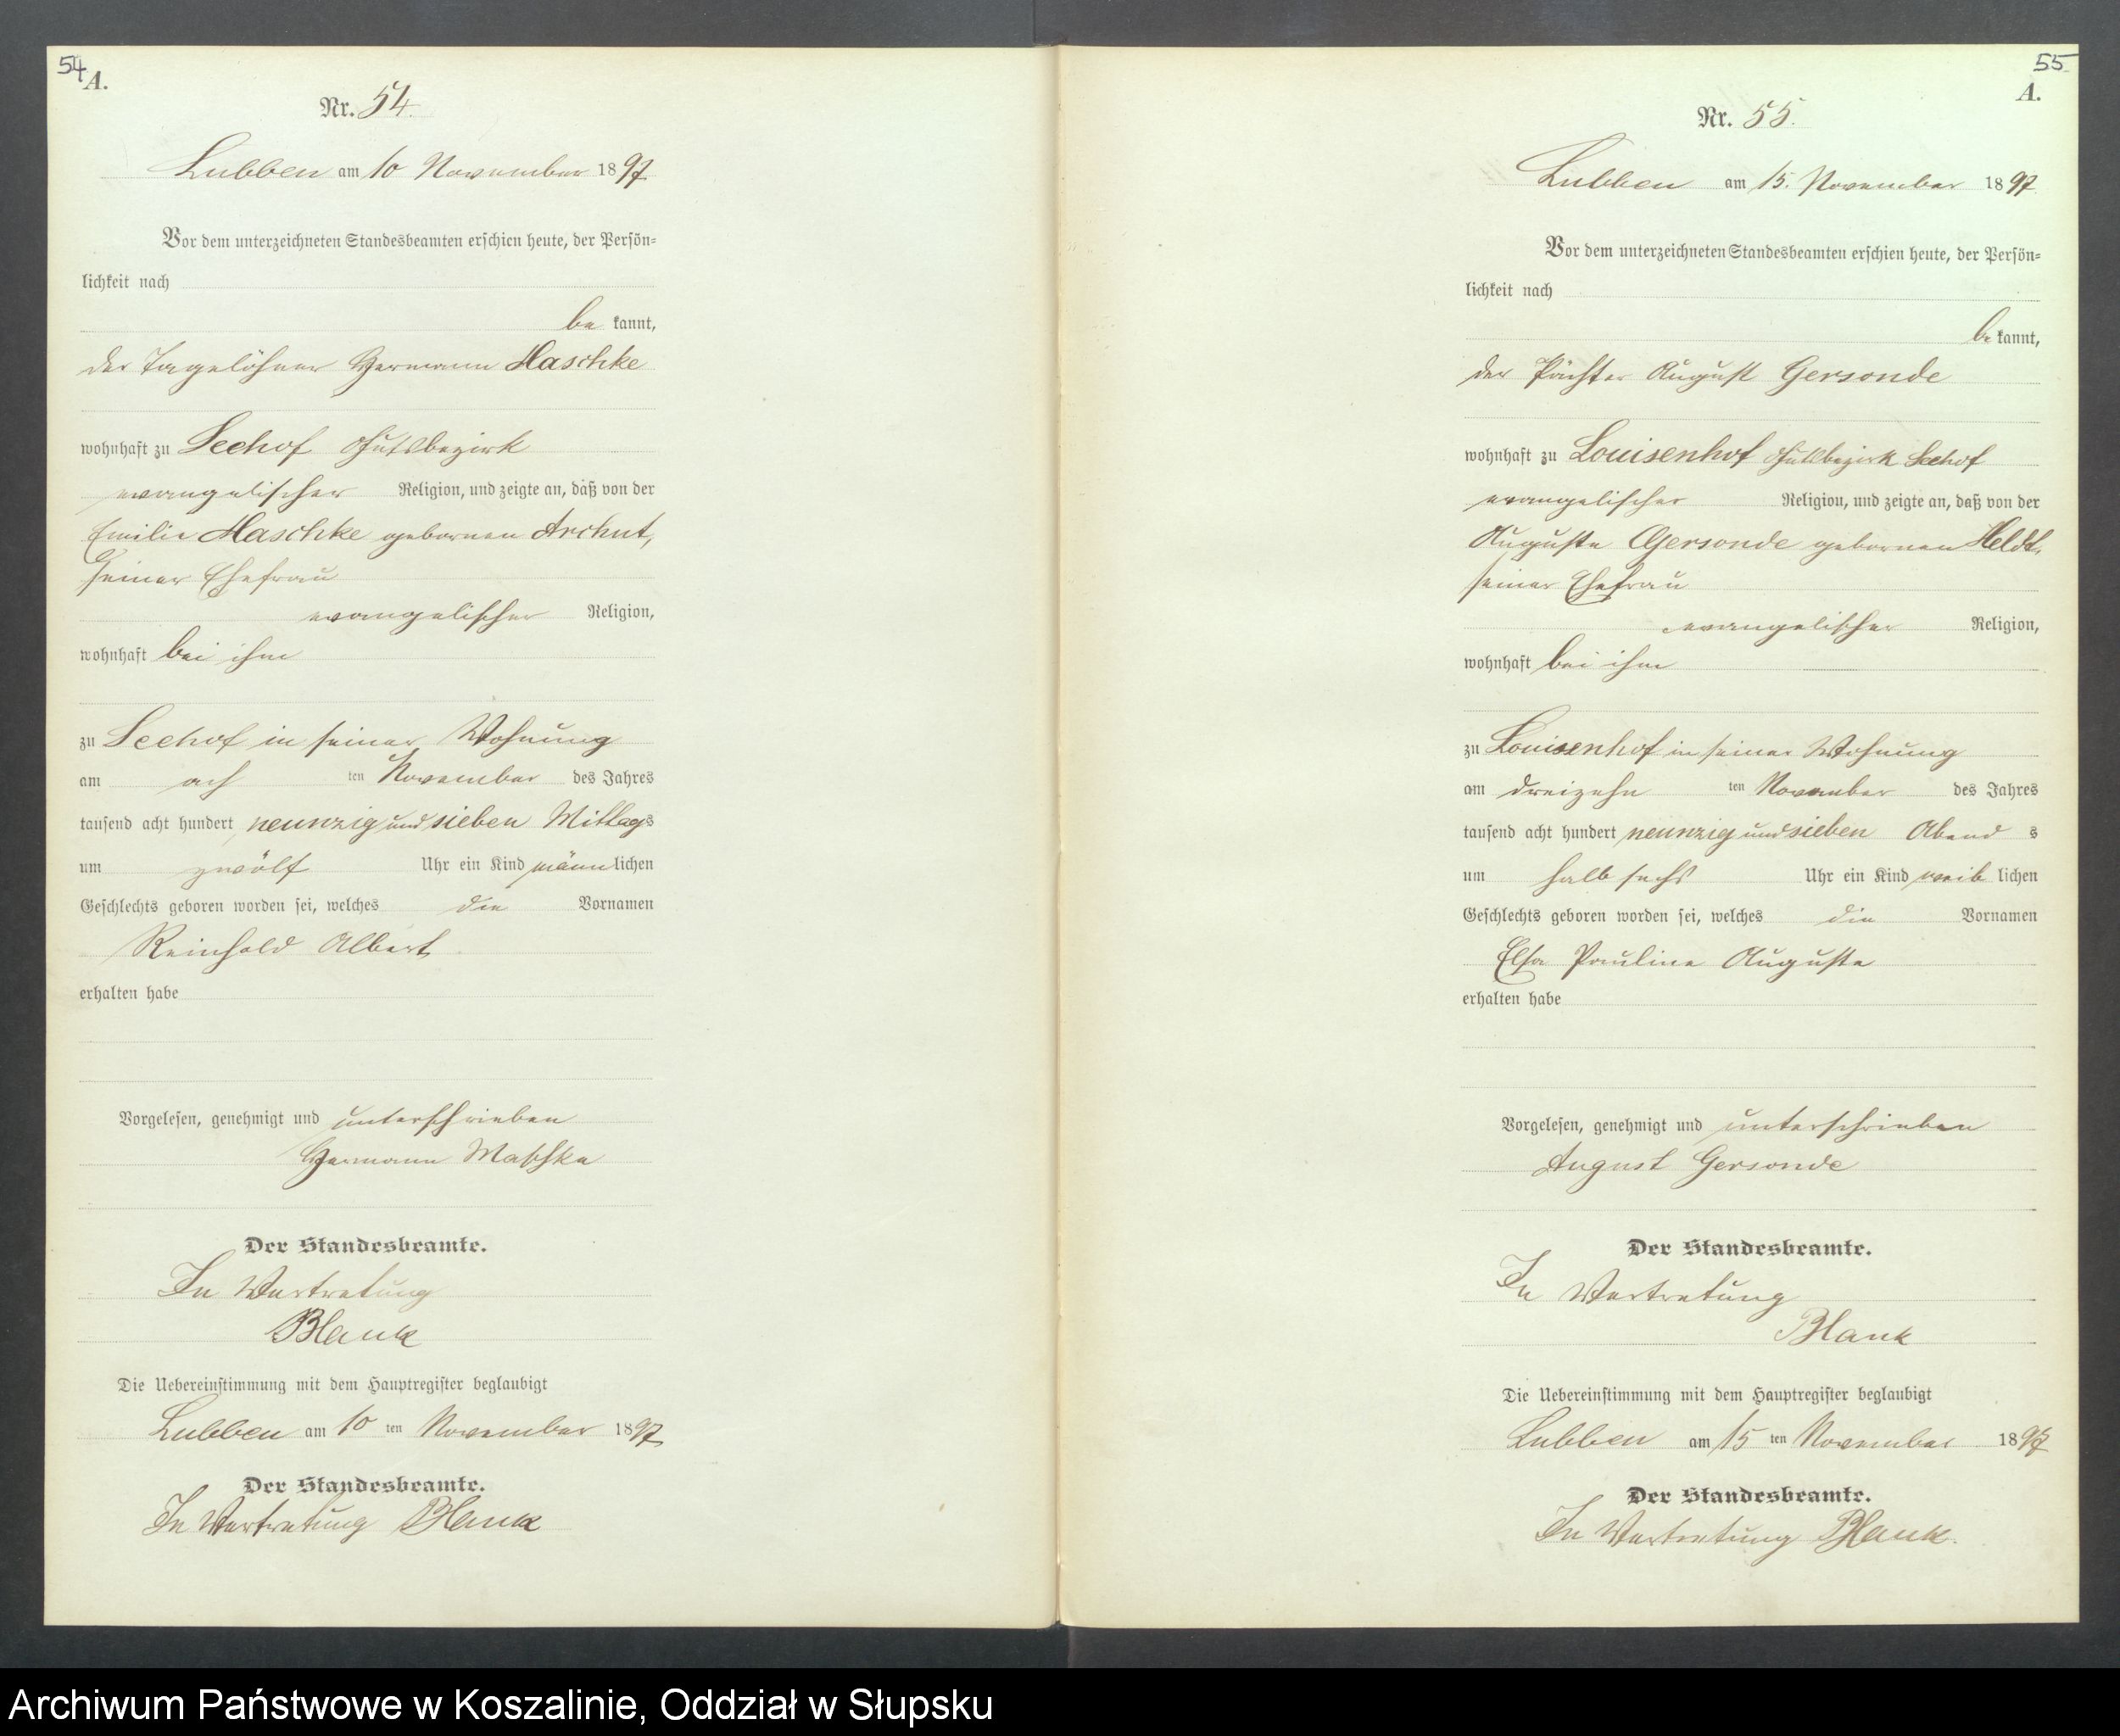 54
A.
Nr. 54.
Lubben am 10 November 1897
Vor dem unterzeichneten Standesbeamten erschien heute, der Persön-
lichkeit nach
be kannt,
der Tagelöhner Hermann Maschke
wohnhaft zu Seehof Gutsbezirk
evangelischer Religion, und zeigte an, daß von der
Emilie Maschke gebornen Archut,
seiner Ehefrau
evangelischer Religion,
wohnhaft bei ihm
zu Seehof in seiner Wohnung
am ach ten November des Jahres
tausend acht hundert neunzig und sieben Mittags
um zwölf Uhr ein Kind männlichen
Geschlechts geboren worden sei, welches die Vornamen
Reinhold Albert
erhalten habe
Vorgelesen, genehmigt und unterschrieben
Hermann Maschke
Der Standesbeamte.
In Vertretung
Blank
Die Uebereinstimmung mit dem Hauptregister beglaubigt
Lubben am 10 ten November 1897
Der Standesbeamte.
In Vertretung Blank
55
A.
Nr. 55.
Lubben am 15. November 1897
Vor dem unterzeichneten Standesbeamten erschien heute, der Persön-
lichkeit nach
be kannt,
der Pächter August Gersonde
wohnhaft zu Louisenhof Gutsbezirk Seehof
evangelischer Religion, und zeigte an, daß von der
Auguste Gersonde gebornen Heldt,
seiner Ehefrau
evangelischer Religion,
wohnhaft bei ihm
zu Louisenhof in seiner Wohnung
am dreizehn ten November des Jahres
tausend acht hundert neunzig und sieben Abend s
um halb sechs Uhr ein Kind weib lichen
Geschlechts geboren worden sei, welches die Vornamen
Elsa Pauline Auguste
erhalten habe
Vorgelesen, genehmigt und unterschrieben
August Gersonde
Der Standesbeamte.
In Vertretung
Blank
Die Uebereinstimmung mit dem Hauptregister beglaubigt
Lubben am 15 ten November 1897
Der Standesbeamte.
In Vertretung Blank.
Archiwum Państwowe w Koszalinie, Oddział w Słupsku